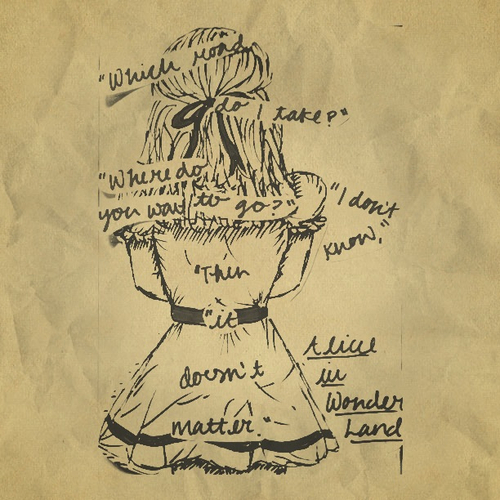 "Which road
do I take?"
"Where do
you want to go?"
"I don't
know,"
"Then
"it
doesn't
matter."
Alice
in
Wonder
Land